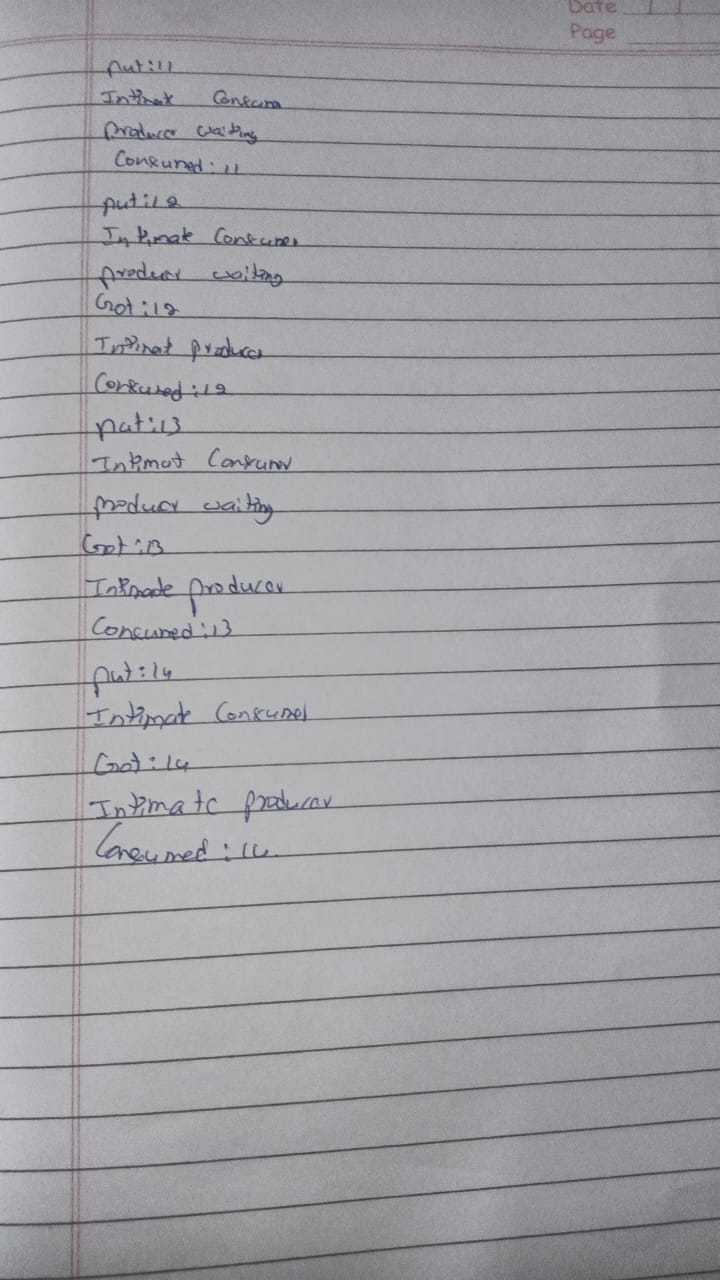 Date
Page
put:11
Intimat Consum
produce waiting
Consumed:11
put:12
Intimate Consumer
producer waiting
Got:12
Intimat produce
Consumed:12
put:13
Intimat Consumer
producer waiting
Got:13
Intimade producer
Consumed:13
put:14
Intimate Consumer
Got:14
Intimate producer
Consumed:14.